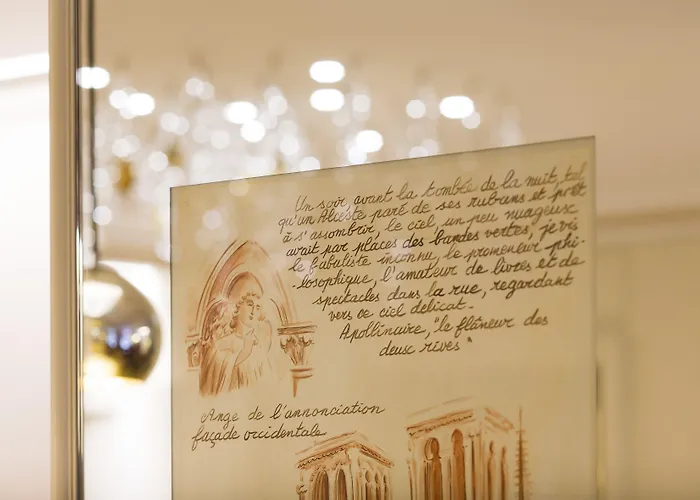 Un soir avant la tombée de la nuit, tel
qu'un Alceste paré de ses rubans et prêt
à s'assombrir, le ciel, un peu nuageux
avait par places des bandes vertes, je vis
le fabuliste inconnu, le promeneur phi-
-losophique, l'amateur de livres et de
spectacles dans la rue, regardant
vers ce ciel délicat.
Apollinaire, "le flâneur des
deux rives"
Ange de l'annonciation
façade occidentale